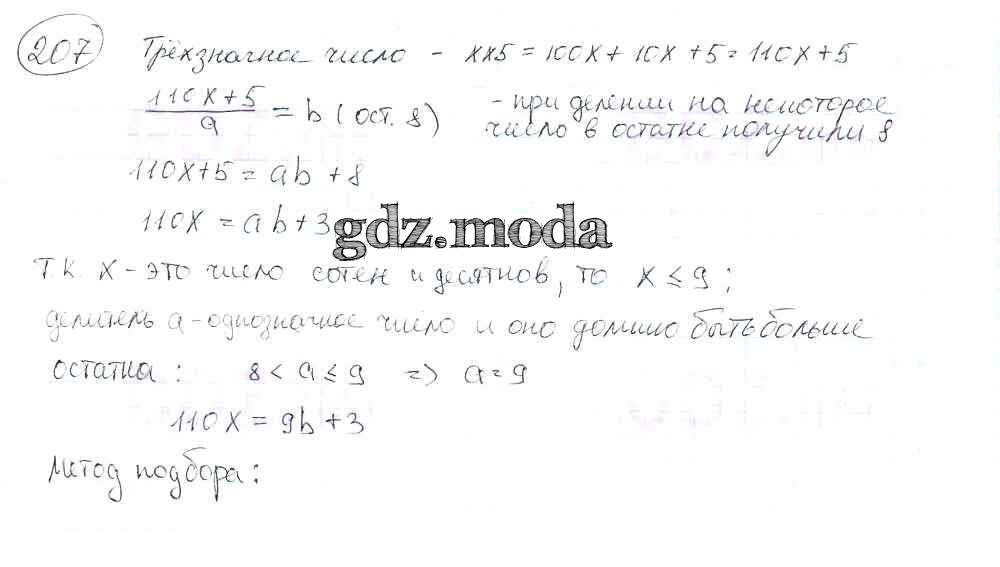 207 Трёхзначное число - xx5 = 100x + 10x + 5 = 110x + 5
110x+5 / a = b (ост. 8) - при делении на некоторое
число в остатке получили 8
110x+5 = ab + 8
110x = ab + 3
gdz.moda
т.к. x - это число сотен и десятков, то x ≤ 9;
делитель a - однозначное число и оно должно быть больше
остатка: 8 < a ≤ 9 => a = 9
110x = 9b + 3
Метод подбора: